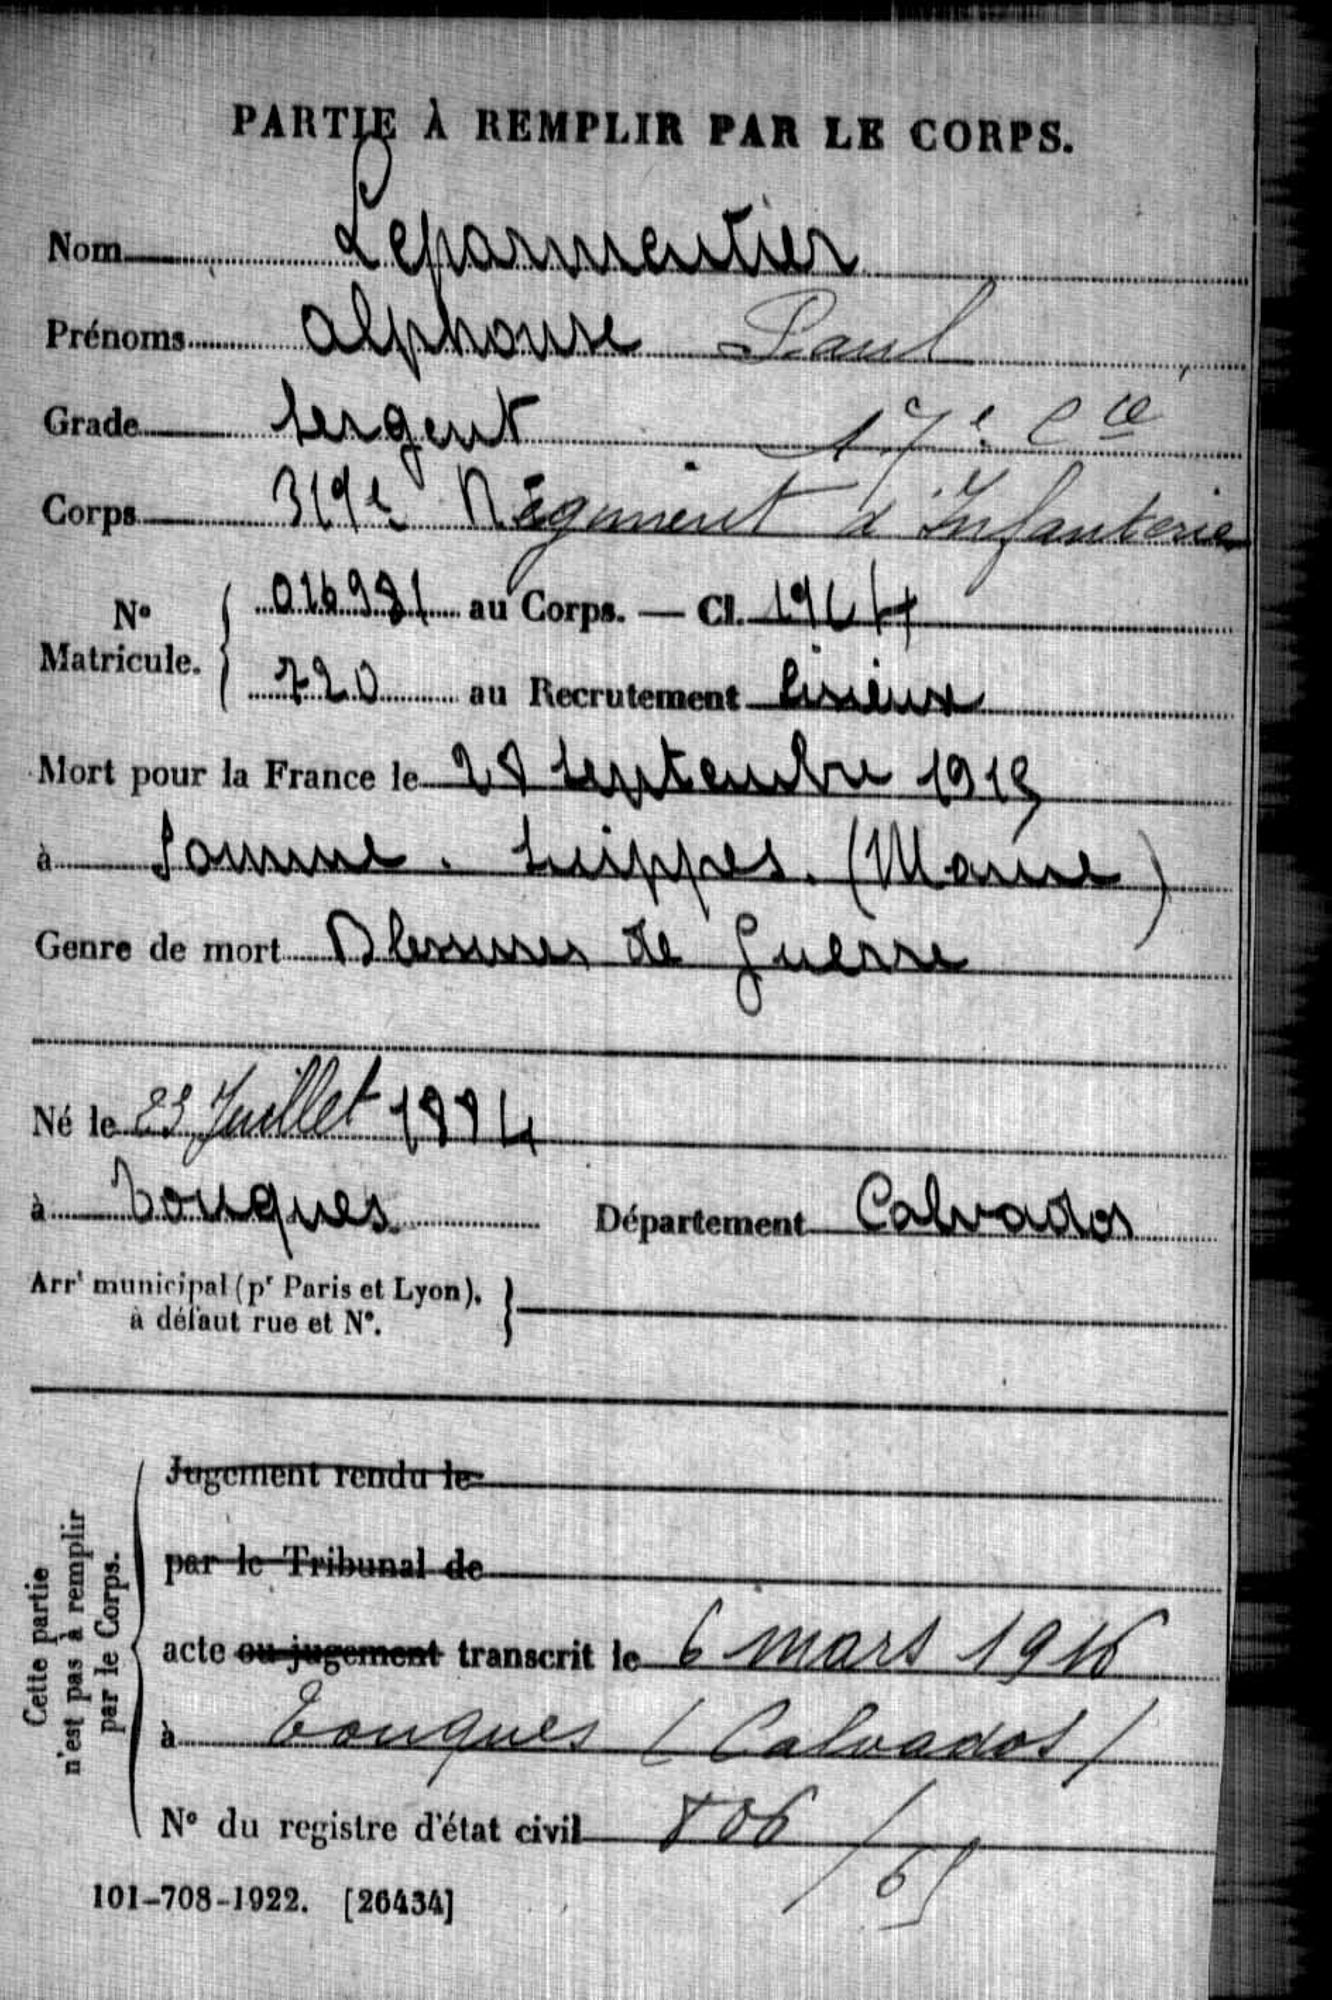 PARTIE À REMPLIR PAR LE CORPS.
Nom Leparmentier
Prénoms Alphonse Paul
Grade Sergent 17e Cie
Corps 319e Régiment d'Infanterie
No Matricule. 016981 au Corps. — Cl. 1904
720 au Recrutement Lisieux
Mort pour la France le 28 Septembre 1915
à Somme. Suippes. (Marne)
Genre de mort Blessures de Guerre
Né le 23 Juillet 1884
à Touques Département Calvados
Arrt municipal (pr Paris et Lyon),
à défaut rue et No.
Cette partie
n'est pas à remplir
par le Corps.
Jugement rendu le
par le Tribunal de
acte ou jugement transcrit le 6 mars 1916
à Touques (Calvados)
No du registre d'état civil 806/65
101-708-1922. [26434]